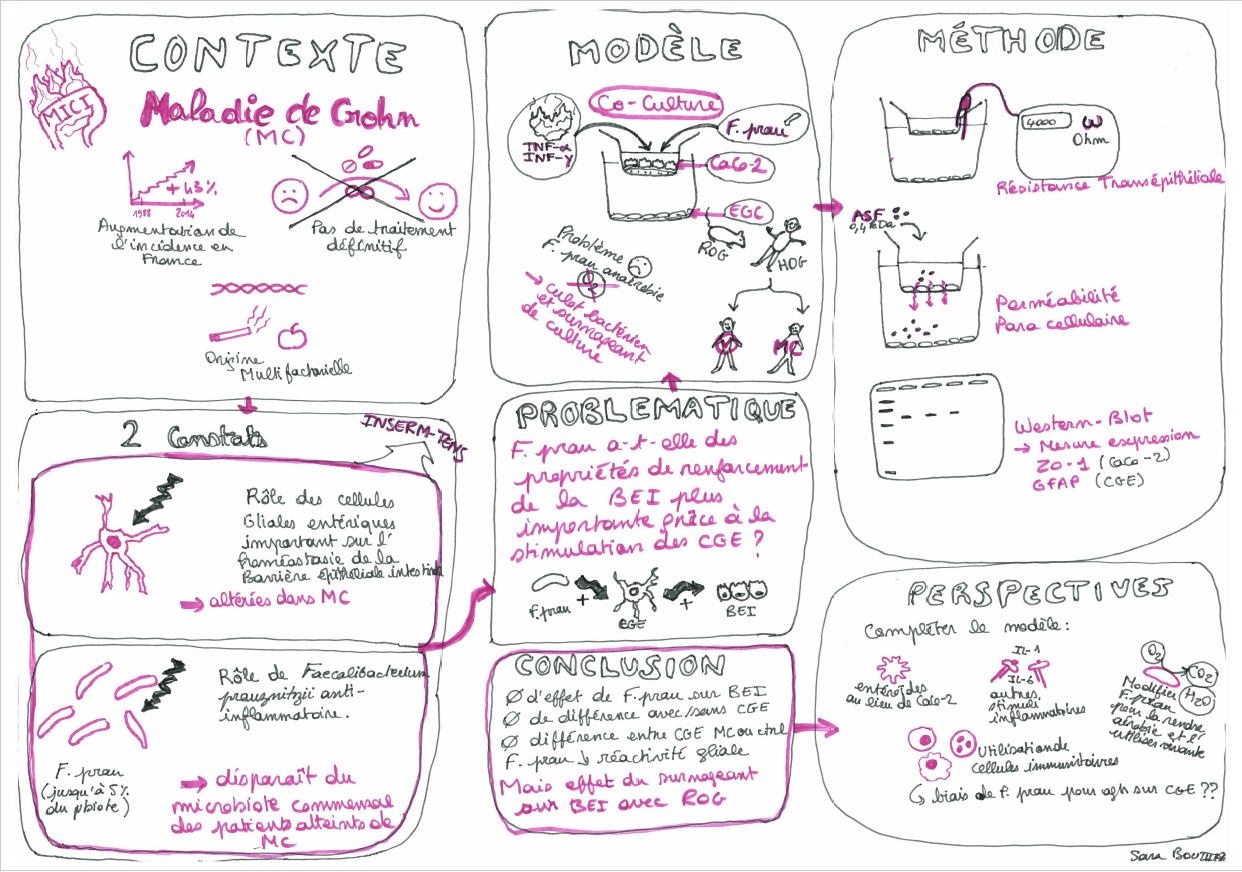 CONTEXTE
MICI
Maladie de Crohn
(MC)
+ 43 %
1988 2014
Augmentation de
l'incidence en
France
Pas de traitement
définitif
Origine
Multifactorielle
2 Constats
INSERM-TENS
Rôle des cellules
Gliales entériques
important sur l'
homéostasie de la
Barrière épithéliale intestinale
→ altérées dans MC
Rôle de Faecalibacterium
prausnitzii anti-
inflammatoire.
F. prau
(jusqu'à 5%
du μbiote)
→ disparaît du
microbiote commensal
des patients atteints de
MC
MODÈLE
Co-Culture
TNF-α
INF-γ
F. prau ?
CaCo-2
EGC
ROG
HOG
M
MC
Problème
F. prau anaérobie
O2
→ culot bactérien
et surnageant
de culture
PROBLEMATIQUE
F. prau a-t-elle des
propriétés de renforcement
de la BEI plus
importante grâce à la
stimulation des CGE ?
F. prau + CGE + BEI
CONCLUSION
Ø d'effet de F. prau sur BEI
Ø de différence avec/sans CGE
Ø différence entre CGE MC ou ctrl
F. prau ↓ réactivité gliale
Mais effet du surnageant
sur BEI avec ROG
MÉTHODE
4000 ω
Ohm
Résistance Transépithéliale
ASF
0,4 kDa
Perméabilité
Para cellulaire
Western-Blot
→ Mesure expression
ZO-1 (CaCo-2)
GFAP (CGE)
PERSPECTIVES
Compléter le modèle :
entéroïdes
au lieu de Caco-2
IL-1
IL-6
autres
stimuli
inflammatoires
O2
CO2
H2O
Modifier
F. prau
pour la rendre
aérobie et l'
utiliser vivante
Utilisation de
cellules immunitaires
↳ biais de F. prau pour agir sur CGE ??
Sara